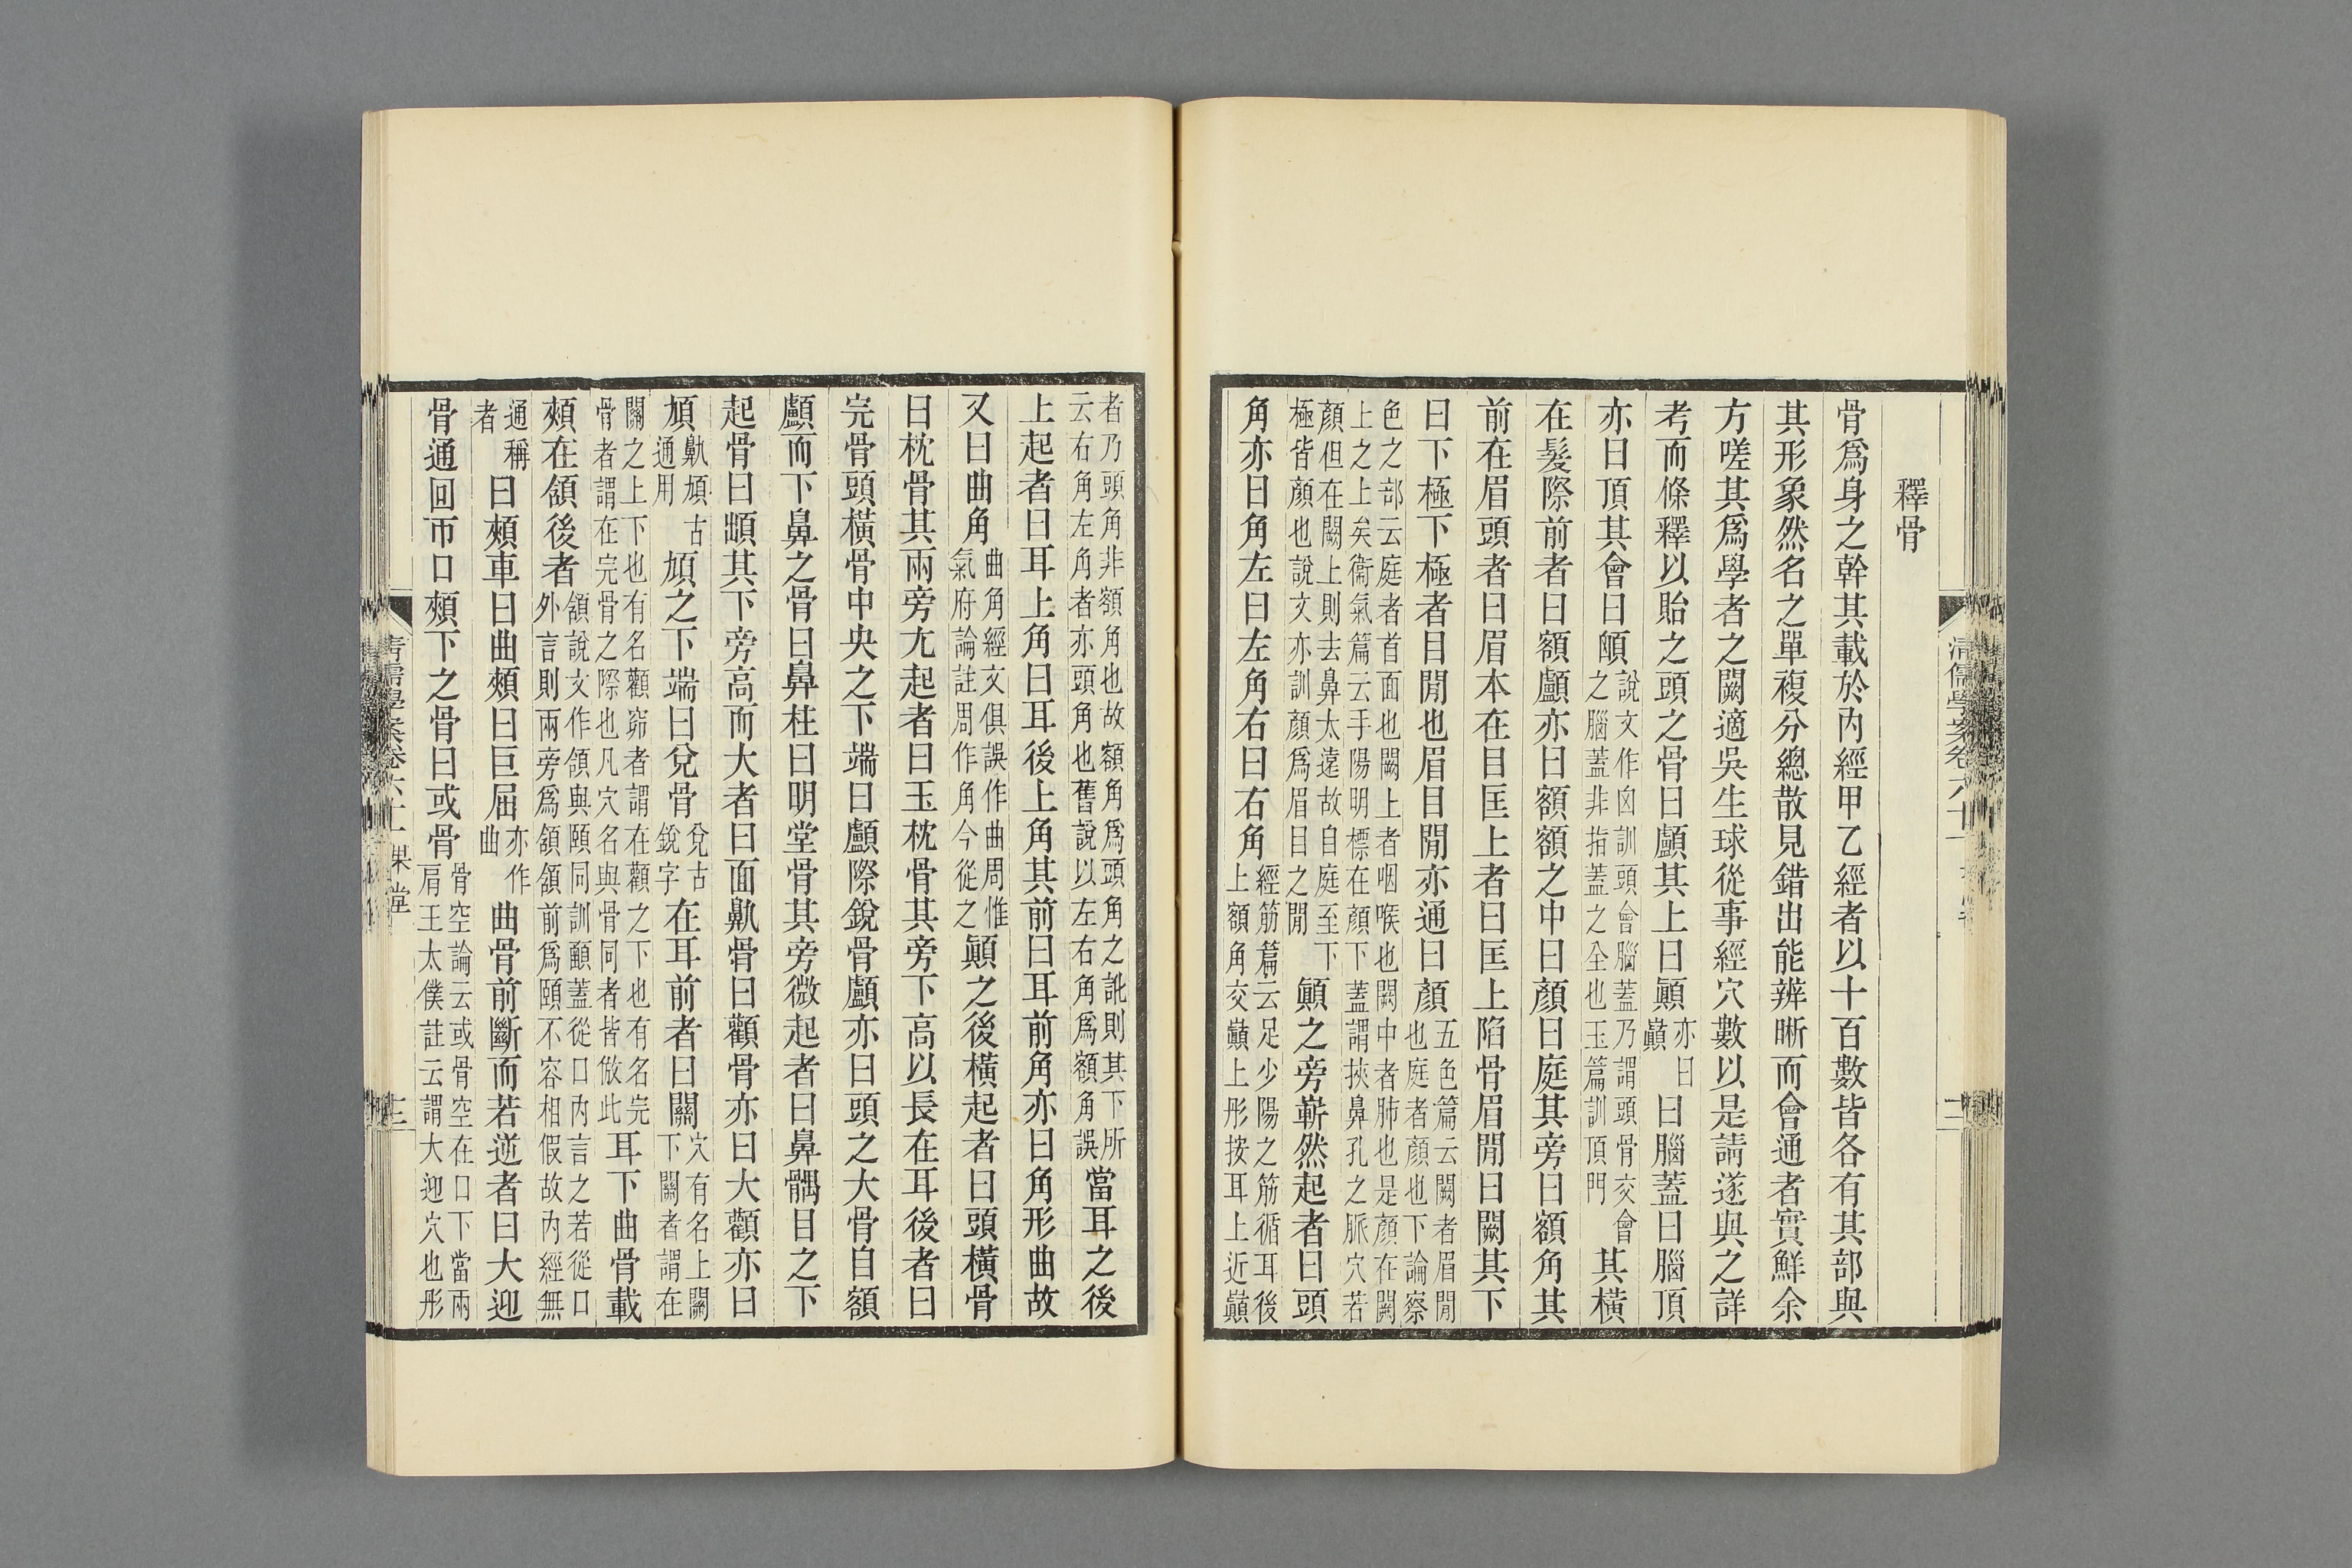 釋骨
骨爲身之幹其載於內經甲乙經者以十百數皆各有其部與
其形象然名之單複分總散見錯出能辨晰而會通者實鮮余
方嗟其爲學者之闕適吳生球從事經穴數以是請遂與之詳
考而條釋以貽之頭之骨曰顱其上曰顚亦曰巔曰腦蓋曰腦頂
亦曰頂其會曰䪿說文作囟訓頭會腦蓋乃謂頭骨交會之腦蓋非指蓋之全也玉篇訓頂門其橫
在髮際前者曰額顱亦曰額額之中曰顏曰庭其旁曰額角其
前在眉頭者曰眉本在目匡上者曰匡上陷骨眉閒曰闕其下
曰下極下極者目閒也眉目閒亦通曰顏五色篇云闕者眉閒也庭者顏也下論察
色之部云庭者首面也闕上者咽喉也闕中者肺也是顏在闕上之上矣衞氣篇云手陽明標在顏下蓋謂挾鼻孔之脈穴若
顏但在闕上則去鼻太遠故自庭至下極皆顏也說文亦訓顏爲眉目之閒顚之旁嶄然起者曰頭
角亦曰角左曰左角右曰右角經筋篇云足少陽之筋循耳後上額角交巔上形按耳上近巔
者乃頭角非額角也故額角爲頭角之訛則其下所云右角左角者亦頭角也舊說以左右角爲額角誤當耳之後
上起者曰耳上角曰耳後上角其前曰耳前角亦曰角形曲故
又曰曲角曲角經文俱誤作曲周惟氣府論註周作角今從之顚之後橫起者曰頭橫骨
曰枕骨其兩旁尤起者曰玉枕骨其旁下高以長在耳後者曰
完骨頭橫骨中央之下端曰顱際銳骨顱亦曰頭之大骨自額
顱而下鼻之骨曰鼻柱曰明堂骨其旁微起者曰鼻髃目之下
起骨曰䪼其下旁高而大者曰面鼽骨曰顴骨亦曰大顴亦曰
頄鼽頄古通用頄之下端曰兌骨兌古銳字在耳前者曰關穴有名上關下關者謂在
關之上下也有名顴窌者謂在顴之下也有名完骨者謂在完骨之際也凡穴名與骨同者皆倣此耳下曲骨載
頰在頷後者頷說文作頜與頤同訓顄蓋從口內言之若從口外言則兩旁爲頷頷前爲頤不容相假故內經無
通稱者曰頰車曰曲頰曰巨屈亦作曲曲骨前斷而若逆者曰大迎
骨通回帀口頰下之骨曰或骨骨空論云或骨空在口下當兩肩王太僕註云謂大迎穴也形
清儒學案卷六十一 果堂